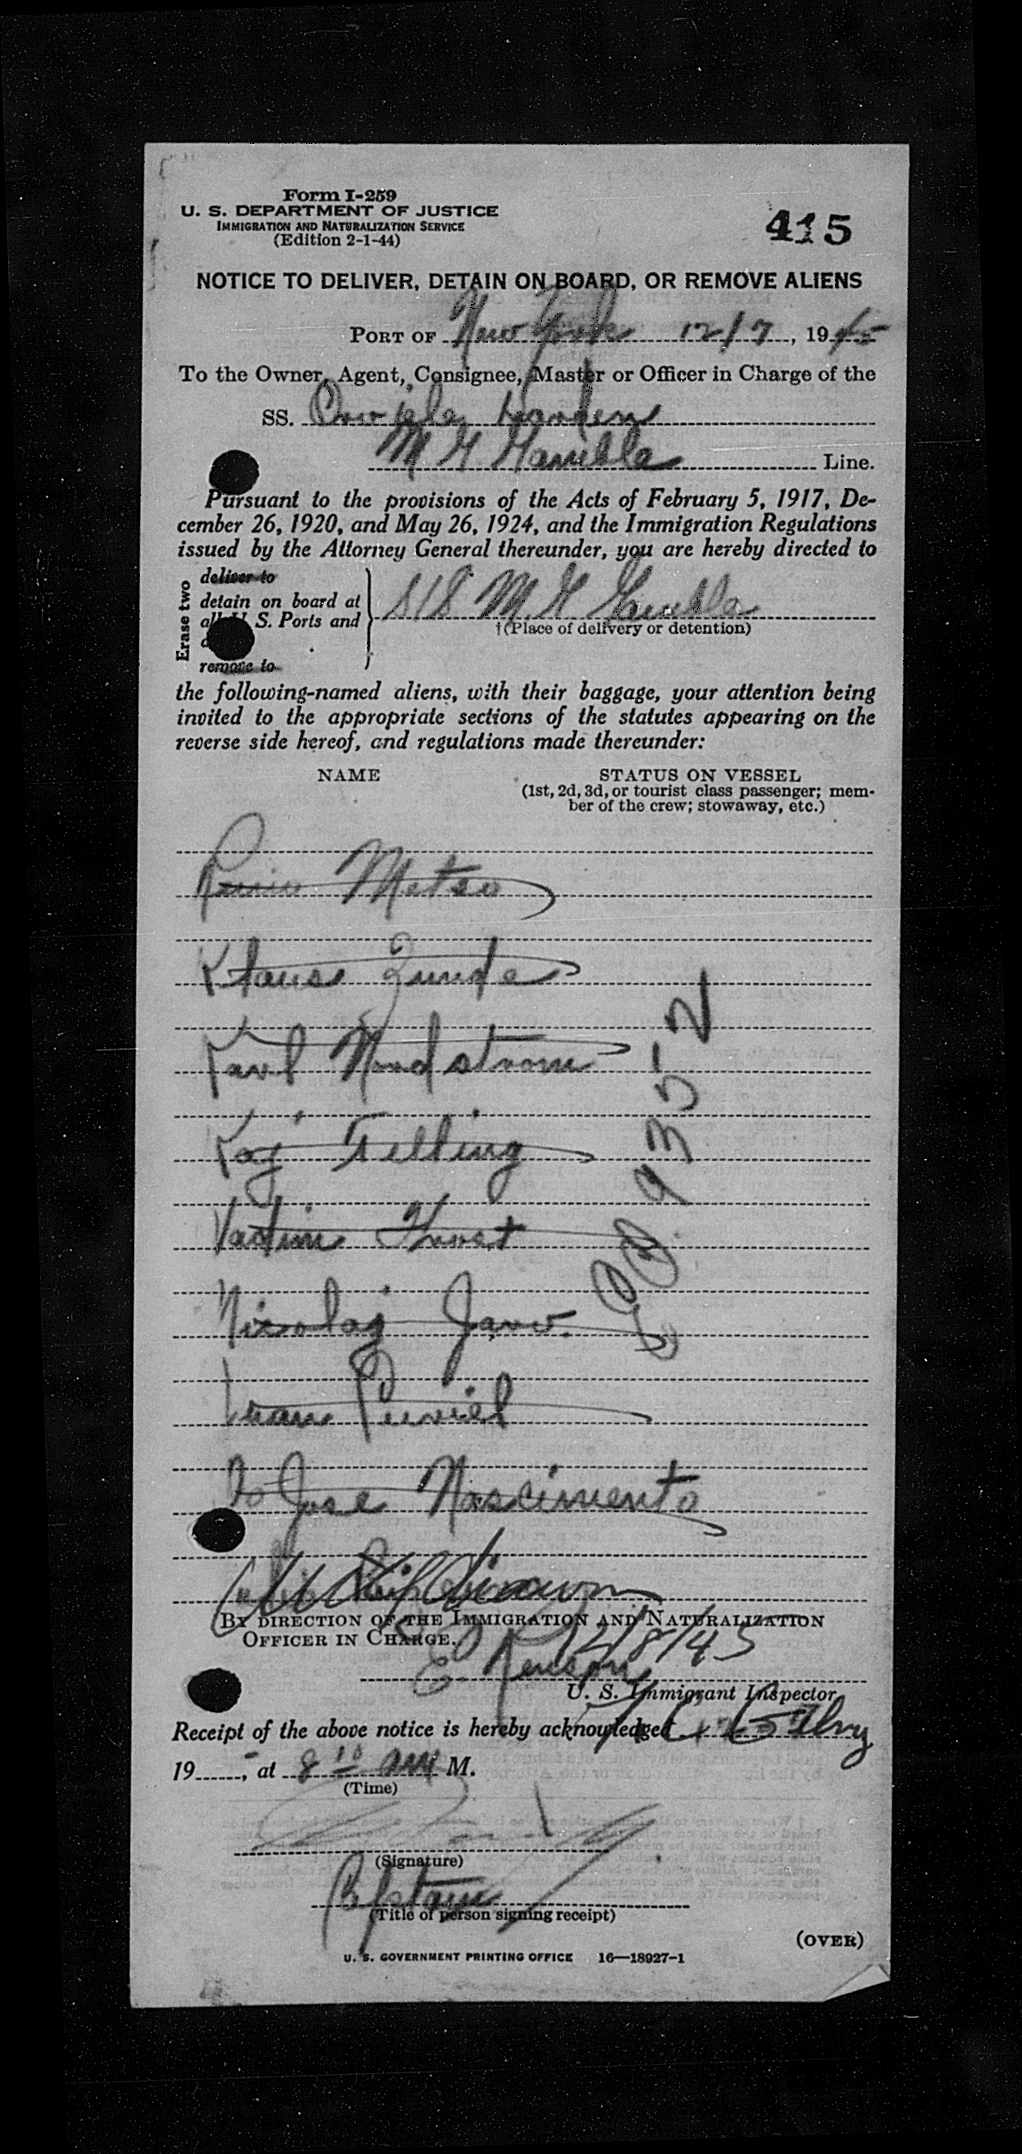 Form I-259
U. S. DEPARTMENT OF JUSTICE
IMMIGRATION AND NATURALIZATION SERVICE
(Edition 2-1-44)
415
NOTICE TO DELIVER, DETAIN ON BOARD, OR REMOVE ALIENS
PORT OF New York 12/7, 1945
To the Owner, Agent, Consignee, Master or Officer in Charge of the
SS.
M G Gamble Line.
Pursuant to the provisions of the Acts of February 5, 1917, De-
cember 26, 1920, and May 26, 1924, and the Immigration Regulations
issued by the Attorney General thereunder, you are hereby directed to
Erase two
deliver to
detain on board at
all U. S. Ports and
remove to
S/S M. G Gamble
†(Place of delivery or detention)
the following-named aliens, with their baggage, your attention being
invited to the appropriate sections of the statutes appearing on the
reverse side hereof, and regulations made thereunder:
NAME STATUS ON VESSEL
(1st, 2d, 3d, or tourist class passenger; mem-
ber of the crew; stowaway, etc.)
Metso
Klaus
Karl Nordstrom
Kaj Telling
Vadim
Nikolaj
Jose Nascimento
BY DIRECTION OF THE IMMIGRATION AND NATURALIZATION
OFFICER IN CHARGE.
12/8/45
E.
U. S. Immigrant Inspector
Receipt of the above notice is hereby acknowledged
19 , at 8 10 am M.
(Time)
(Signature)
(Title of person signing receipt)
(OVER)
U. S. GOVERNMENT PRINTING OFFICE 16—18927-1